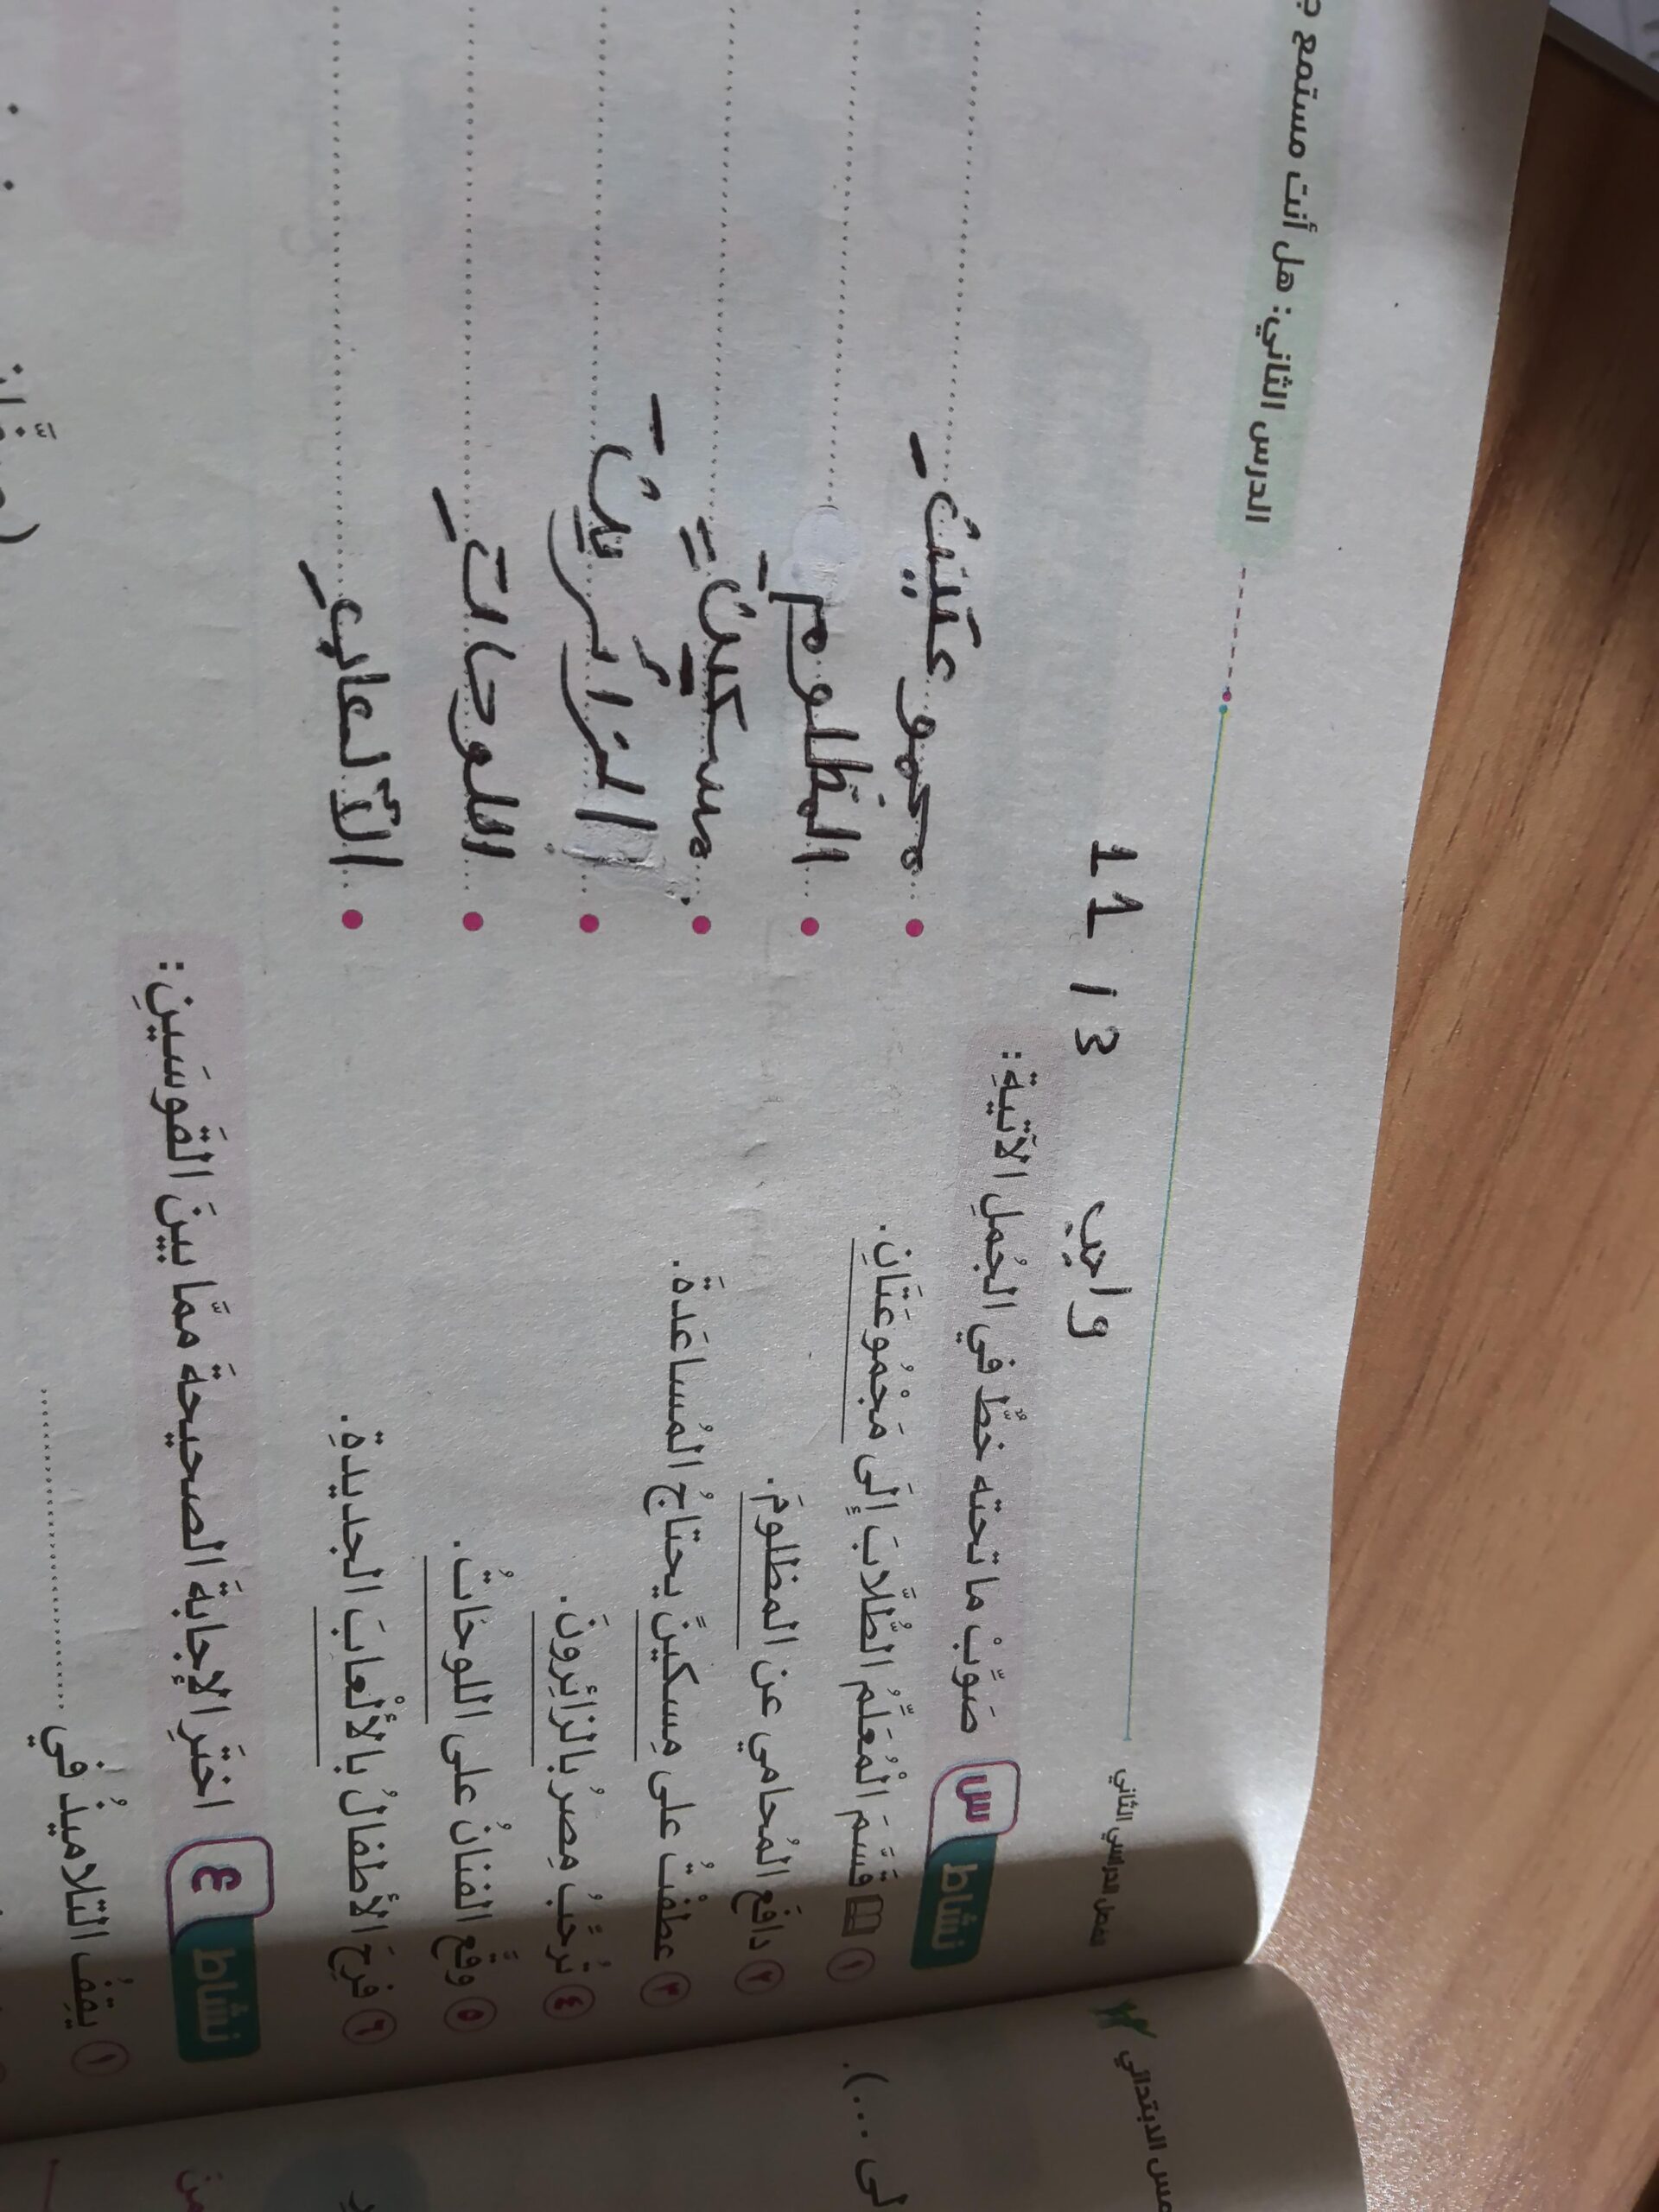 الدرس الثاني: هل أنت مستمع
الفصل الدراسي الثاني
11 / 3 واجب
نشاط ٣ صَوِّبْ ما تحته خطٌّ في الجُملِ الآتيةِ:
١ قَسَّمَ الْمُعَلِّمُ الطُّلَّابَ إلَى مَجْمُوعَتَانِ.
مجموعتين
٢ دافَع المُحامي عن المظلومَ.
المظلومِ
٣ عطفْتُ على مِسكينً يحتاجُ المُساعَدةَ.
مسكينٍ
٤ تُرحِّبُ مِصرُ بالزائِرونَ.
الزائرين
٥ وقَّع الفنانُ على اللوحَاتُ.
اللوحاتِ
٦ فرِحَ الأطفالُ بالأَلْعابَ الجديدةِ.
الألعابِ
نشاط ٤ اختَرِ الإجابةَ الصحيحةَ ممَّا بينَ القَوسَينِ:
١ يقِفُ التلاميذُ في